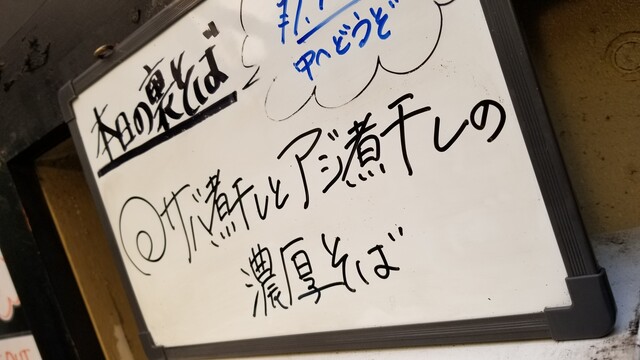 本日の裏そば
中へどうぞ
◎サバ煮干しとアジ煮干しの
濃厚そば